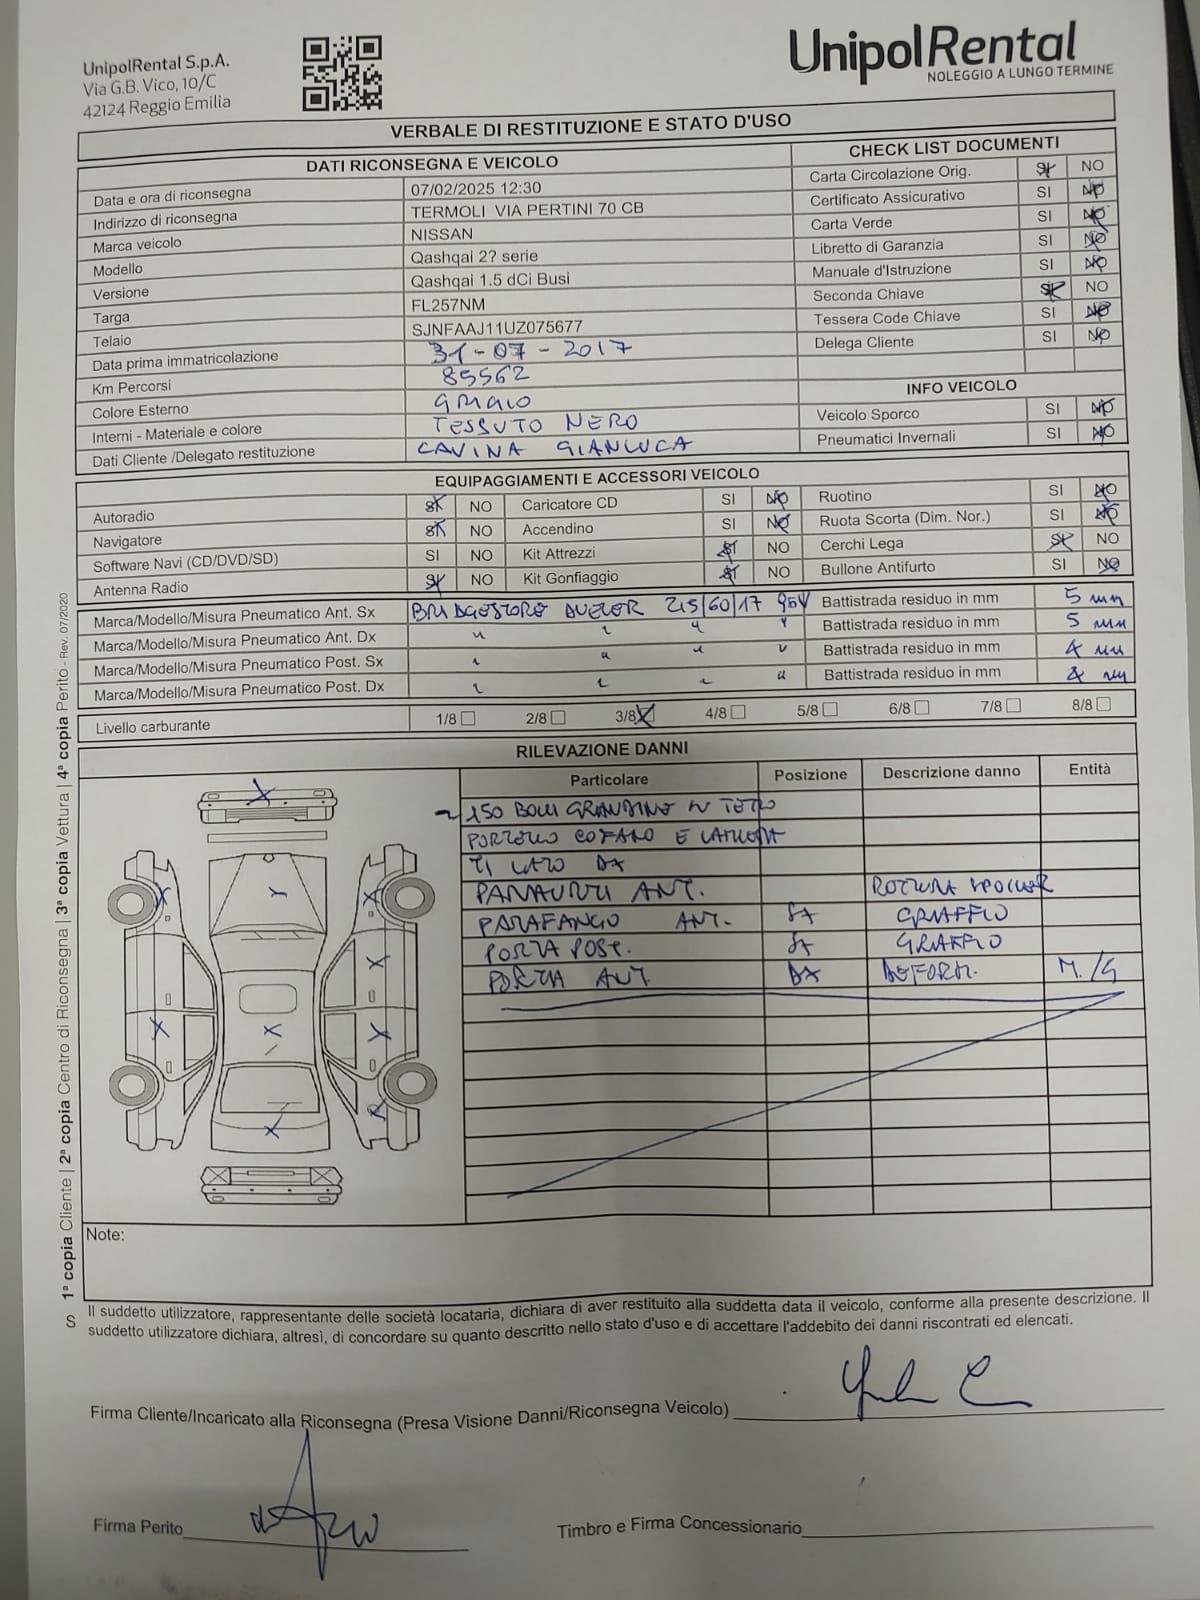 UnipolRental S.p.A.
Via G.B. Vico, 10/C
42124 Reggio Emilia
UnipolRental
NOLEGGIO A LUNGO TERMINE
VERBALE DI RESTITUZIONE E STATO D'USO
DATI RICONSEGNA E VEICOLO
Data e ora di riconsegna 07/02/2025 12:30
Indirizzo di riconsegna TERMOLI VIA PERTINI 70 CB
Marca veicolo NISSAN
Modello Qashqai 2? serie
Versione Qashqai 1.5 dCi Busi
Targa FL257NM
Telaio SJNFAAJ11UZ075677
Data prima immatricolazione 31-07-2017
Km Percorsi 85562
Colore Esterno GRIGIO
Interni - Materiale e colore TESSUTO NERO
Dati Cliente /Delegato restituzione CAVINA GIANLUCA
CHECK LIST DOCUMENTI
Carta Circolazione Orig. SI NO
Certificato Assicurativo SI NO
Carta Verde SI NO
Libretto di Garanzia SI NO
Manuale d'Istruzione SI NO
Seconda Chiave SI NO
Tessera Code Chiave SI NO
Delega Cliente SI NO
INFO VEICOLO
Veicolo Sporco SI NO
Pneumatici Invernali SI NO
EQUIPAGGIAMENTI E ACCESSORI VEICOLO
Autoradio SI NO Caricatore CD SI NO Ruotino SI NO
Navigatore SI NO Accendino SI NO Ruota Scorta (Dim. Nor.) SI NO
Software Navi (CD/DVD/SD) SI NO Kit Attrezzi SI NO Cerchi Lega SI NO
Antenna Radio SI NO Kit Gonfiaggio SI NO Bullone Antifurto SI NO
Marca/Modello/Misura Pneumatico Ant. Sx BRIDGESTONE DUELER 215/60/17 95V Battistrada residuo in mm 5 mm
Marca/Modello/Misura Pneumatico Ant. Dx " " " " Battistrada residuo in mm 5 mm
Marca/Modello/Misura Pneumatico Post. Sx " " " " Battistrada residuo in mm 4 mm
Marca/Modello/Misura Pneumatico Post. Dx " " " " Battistrada residuo in mm 4 mm
Livello carburante 1/8 2/8 3/8 4/8 5/8 6/8 7/8 8/8
RILEVAZIONE DANNI
Particolare Posizione Descrizione danno Entità
~150 BOLLI GRANDINE SU TETTO
COFANO E
TI LATO DX
PARAURTI ANT. ROTTURA SPOILER
PARAFANGO ANT. SX GRAFFIO
PORTA POST. SX GRAFFIO
PORTA ANT. DX DEFORM. M./G
Note:
Il suddetto utilizzatore, rappresentante delle società locataria, dichiara di aver restituito alla suddetta data il veicolo, conforme alla presente descrizione. Il
suddetto utilizzatore dichiara, altresì, di concordare su quanto descritto nello stato d'uso e di accettare l'addebito dei danni riscontrati ed elencati.
Firma Cliente/Incaricato alla Riconsegna (Presa Visione Danni/Riconsegna Veicolo)
Firma Perito
Timbro e Firma Concessionario
S 1ª copia Cliente | 2ª copia Centro di Riconsegna | 3ª copia Vettura | 4ª copia Perito - Rev. 07/2020